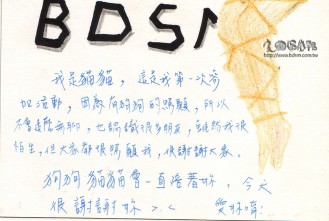 BDSM
http://www.bdsm.com.tw
我是貓貓，這是我第一次參
加活動，因為有狗狗的照顧，所以
不會是蠻無聊，也認識很多朋友，雖然我很
怕生，但大家都很照顧我，很謝謝大家。
狗狗貓貓會一直陪著妳，今天
很謝謝妳 >.< 愛妳唷!